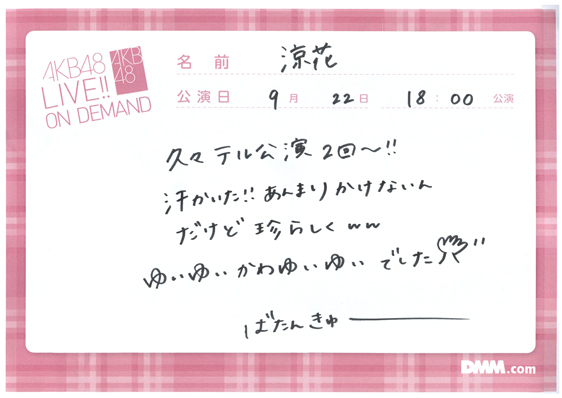 AKB48
LIVE!!
ON DEMAND
AKB
48
名前 涼花
公演日 9月 22日 18:00 公演
久々テル公演2回〜!!
汗かいた!!あんまりかけないん
だけど珍らしくww
ゆいゆいかわゆいゆいでした
ばたんきゅ———
DMM.com